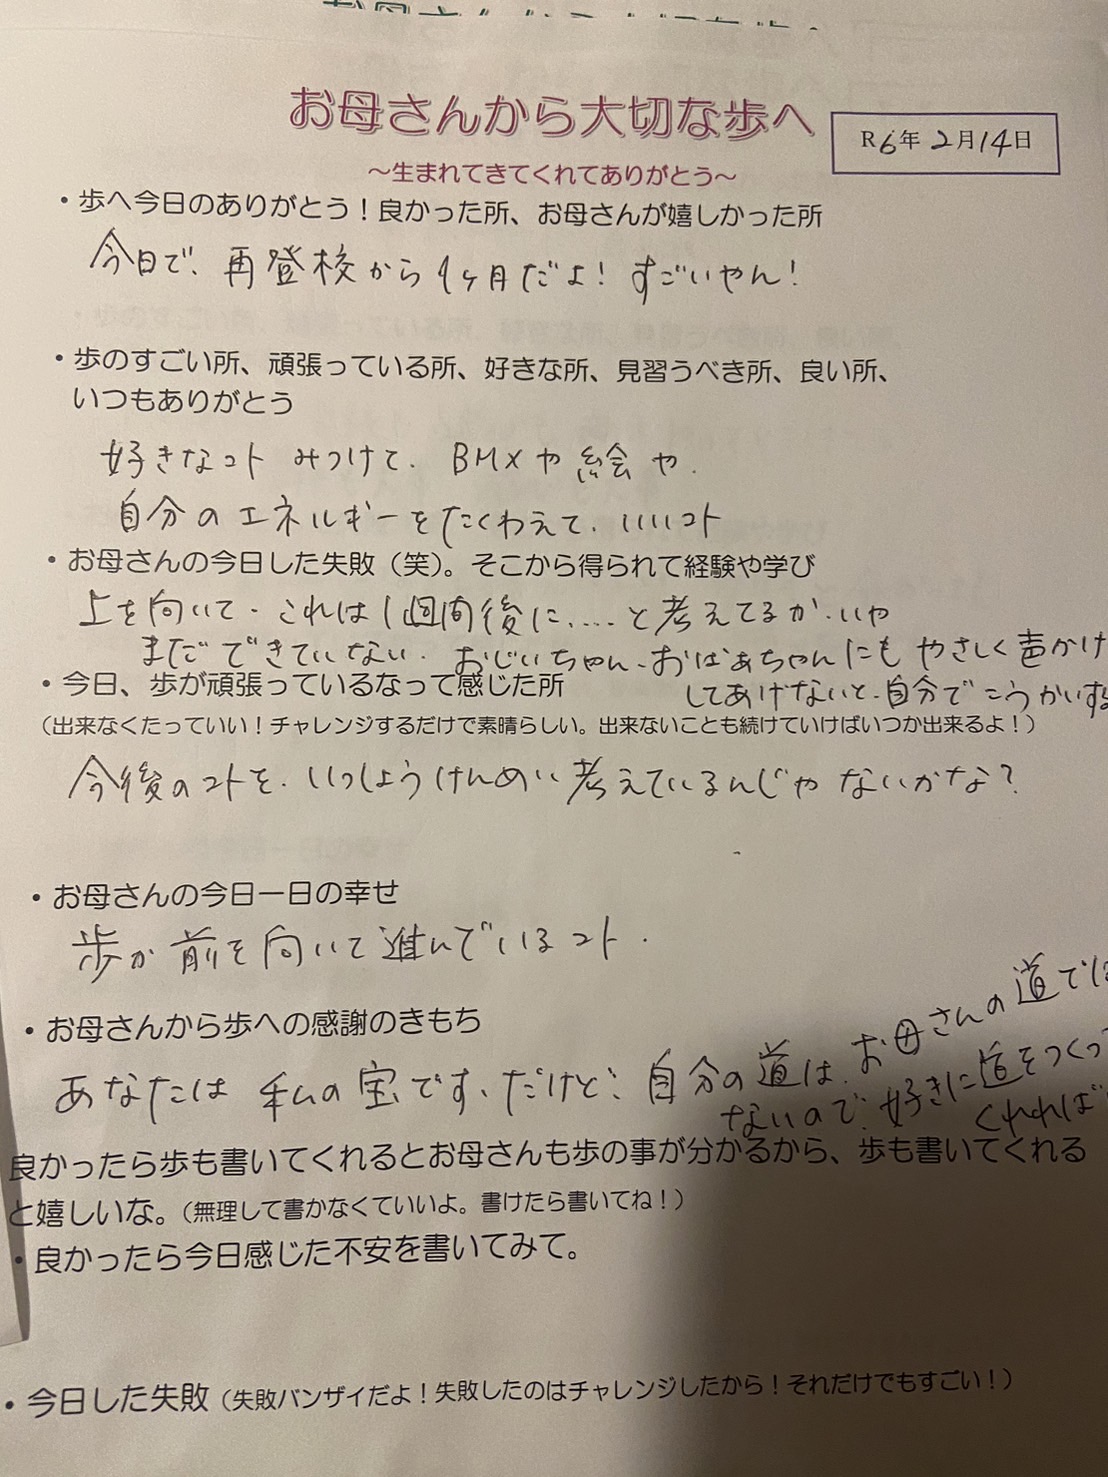 お母さんから大切な歩へ
R6年2月14日
～生まれてきてくれてありがとう～
・歩へ今日のありがとう！良かった所、お母さんが嬉しかった所
今日で、再登校から1ヶ月だよ！すごいやん！
・歩のすごい所、頑張っている所、好きな所、見習うべき所、良い所、
いつもありがとう
好きなコト みつけて、BMXや絵や、
自分のエネルギーをたくわえて、いいコト
・お母さんの今日した失敗（笑）。そこから得られて経験や学び
上を向いて、これは1週間後に、…と考えてるが、いや
まだできていない、おじいちゃん、おばあちゃんにもやさしく声かけ
してあげないと、自分でこうかいする
・今日、歩が頑張っているなって感じた所
（出来なくたっていい！チャレンジするだけで素晴らしい。出来ないことも続けていけばいつか出来るよ！）
今後のコトを、いっしょうけんめい考えているんじゃないかな？
・お母さんの今日一日の幸せ
歩が前を向いて進んでいるコト．
・お母さんから歩への感謝のきもち
あなたは私の宝です、だけど、自分の道は、お母さんの道では
ないので、好きに道をつくって
くれれば
良かったら歩も書いてくれるとお母さんも歩の事が分かるから、歩も書いてくれる
と嬉しいな。（無理して書かなくていいよ。書けたら書いてね！）
・良かったら今日感じた不安を書いてみて。
・今日した失敗（失敗バンザイだよ！失敗したのはチャレンジしたから！それだけでもすごい！）